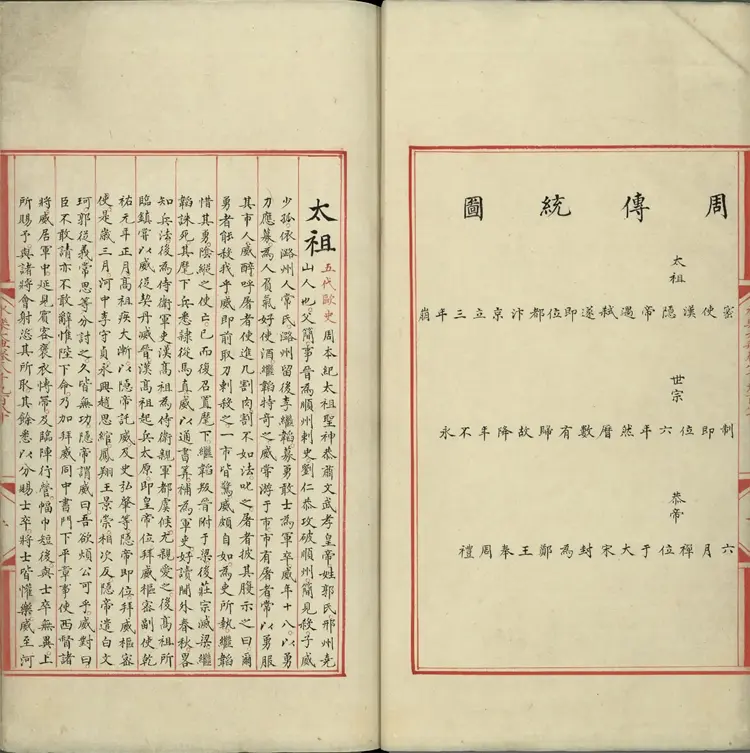 周傳統圖
太祖
密使漢隱帝遇弒遂即位都汴京立三年崩
世宗
制即位六年然曆數有歸故降年不永
恭帝
六月禪位于大宋封為鄭王奉周禮
太祖
五代歐史周本紀太祖聖神恭肅文武孝皇帝姓郭氏邢州堯
山人也父簡事晉為順州刺史劉仁恭攻破順州簡見殺子威
少孤依潞州人常氏潞州留後李繼韜募勇敢士為軍卒威年十八以勇
力應募為人負氣好使酒繼韜特奇之威嘗游于市市有屠者常以勇服
其市人威醉呼屠者使進几割肉割不如法叱之屠者披其腹示之曰爾
勇者能殺我乎威即前取刀刺殺之一市皆驚威頗自如為吏所執繼韜
惜其勇陰縱之使亡已而復召置麾下繼韜叛晉附于梁後莊宗滅梁繼
韜誅死其麾下兵悉隸從馬直威以通書算補為軍吏好讀閫外春秋畧
知兵法後為侍衛軍吏漢高祖為侍衛親軍都虞候尤親愛之後高祖所
臨鎮嘗以威從契丹滅晉漢高祖起兵太原即皇帝位拜威樞密副使乾
祐元年正月高祖疾大漸以隱帝託威及史弘肇等隱帝即位拜威樞密
使是歲三月河中李守貞永興趙思綰鳳翔王景崇相次反隱帝遣白文
珂郭從義常思等分討之久皆無功隱帝謂威曰吾欲煩公可乎威對曰
臣不敢請亦不敢辭惟陛下命乃加拜威同中書門下平章事使西督諸
將威居軍中延見賓客褒衣博帶及臨陣行營幅巾短後與士卒無異上
所賜予與諸將會射恣其所取其餘悉以分賜士卒將士皆懽樂威至河